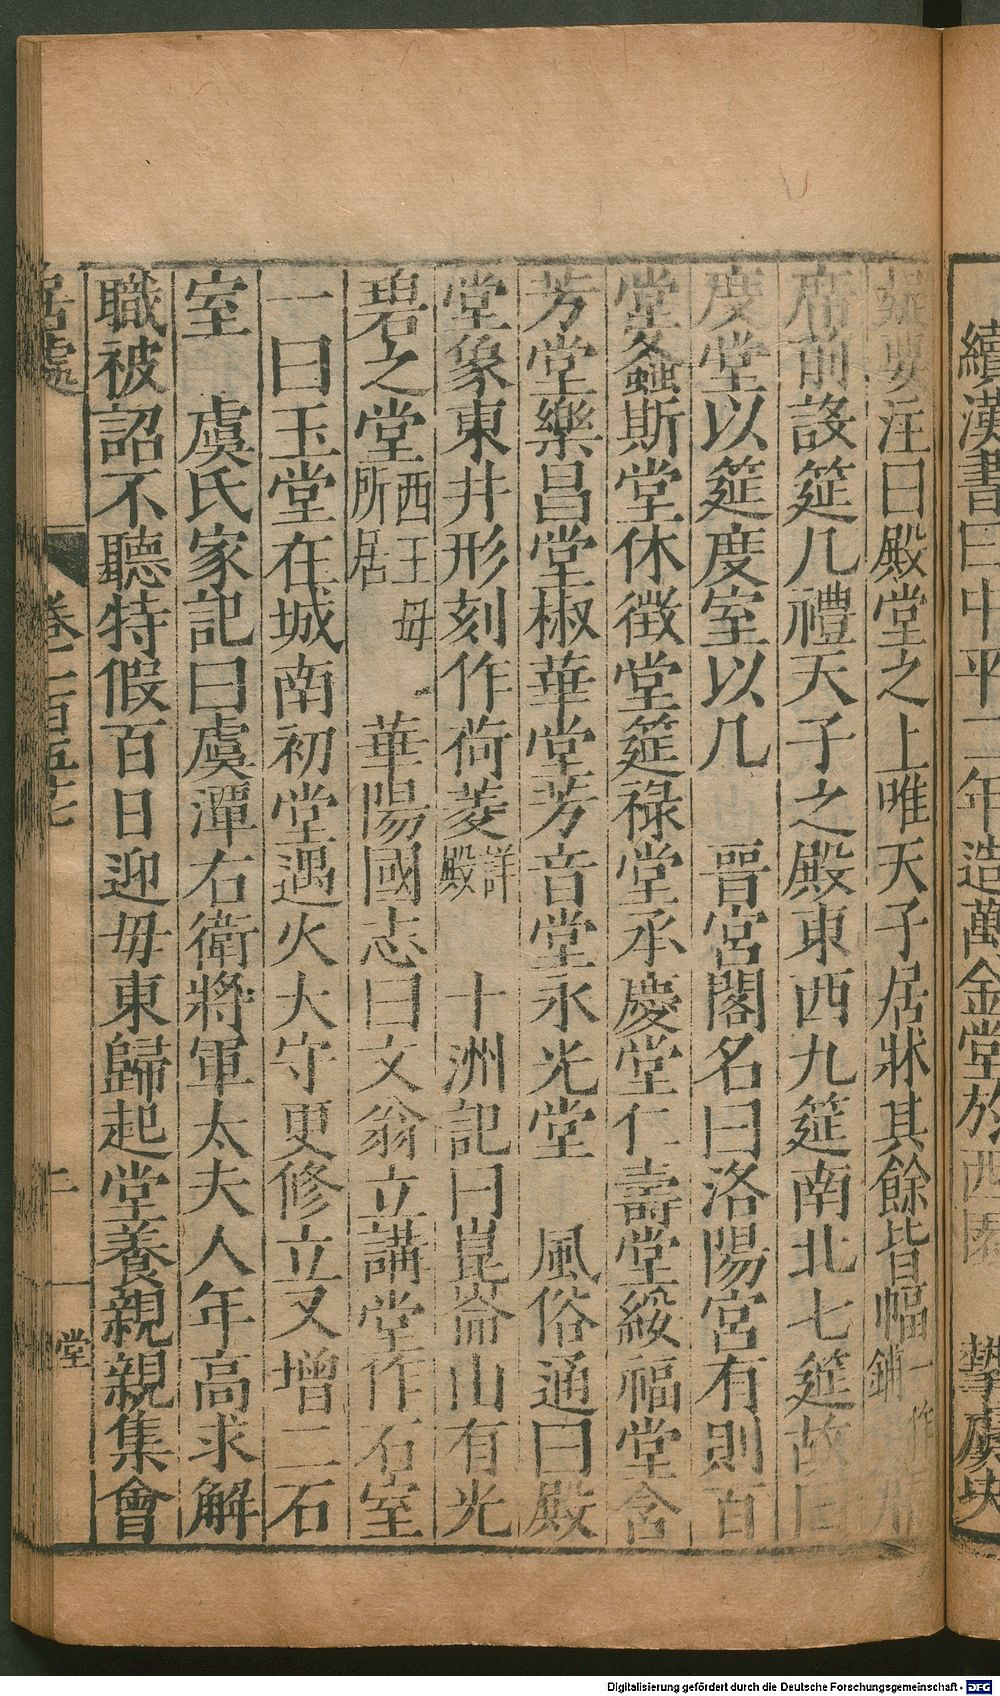 續漢書曰中平二年造萬金堂於西園 摯虞决
疑要注曰殿堂之上唯天子居牀其餘皆幅一作鋪席
席前設筵几禮天子之殿東西九筵南北七筵故曰
度堂以筵度室以几 晉宮閣名曰洛陽宮有則百
堂螽斯堂休徵堂筵祿堂承慶堂仁壽堂綏福堂含
芳堂樂昌堂椒華堂芳音堂永光堂 風俗通曰殿
堂象東井形刻作荷菱詳殿 十洲記曰崑崙山有光
碧之堂西王毋所居 華陽國志曰文翁立講堂作石室
一曰玉堂在城南初堂遇火大守更修立又增二石
室 虞氏家記曰虞潭右衛將軍太夫人年高求解
職被詔不聽特假百日迎毋東歸起堂養親親集會
居處 卷一百五十七 二 堂
Digitalisierung gefördert durch die Deutsche Forschungsgemeinschaft - DFG